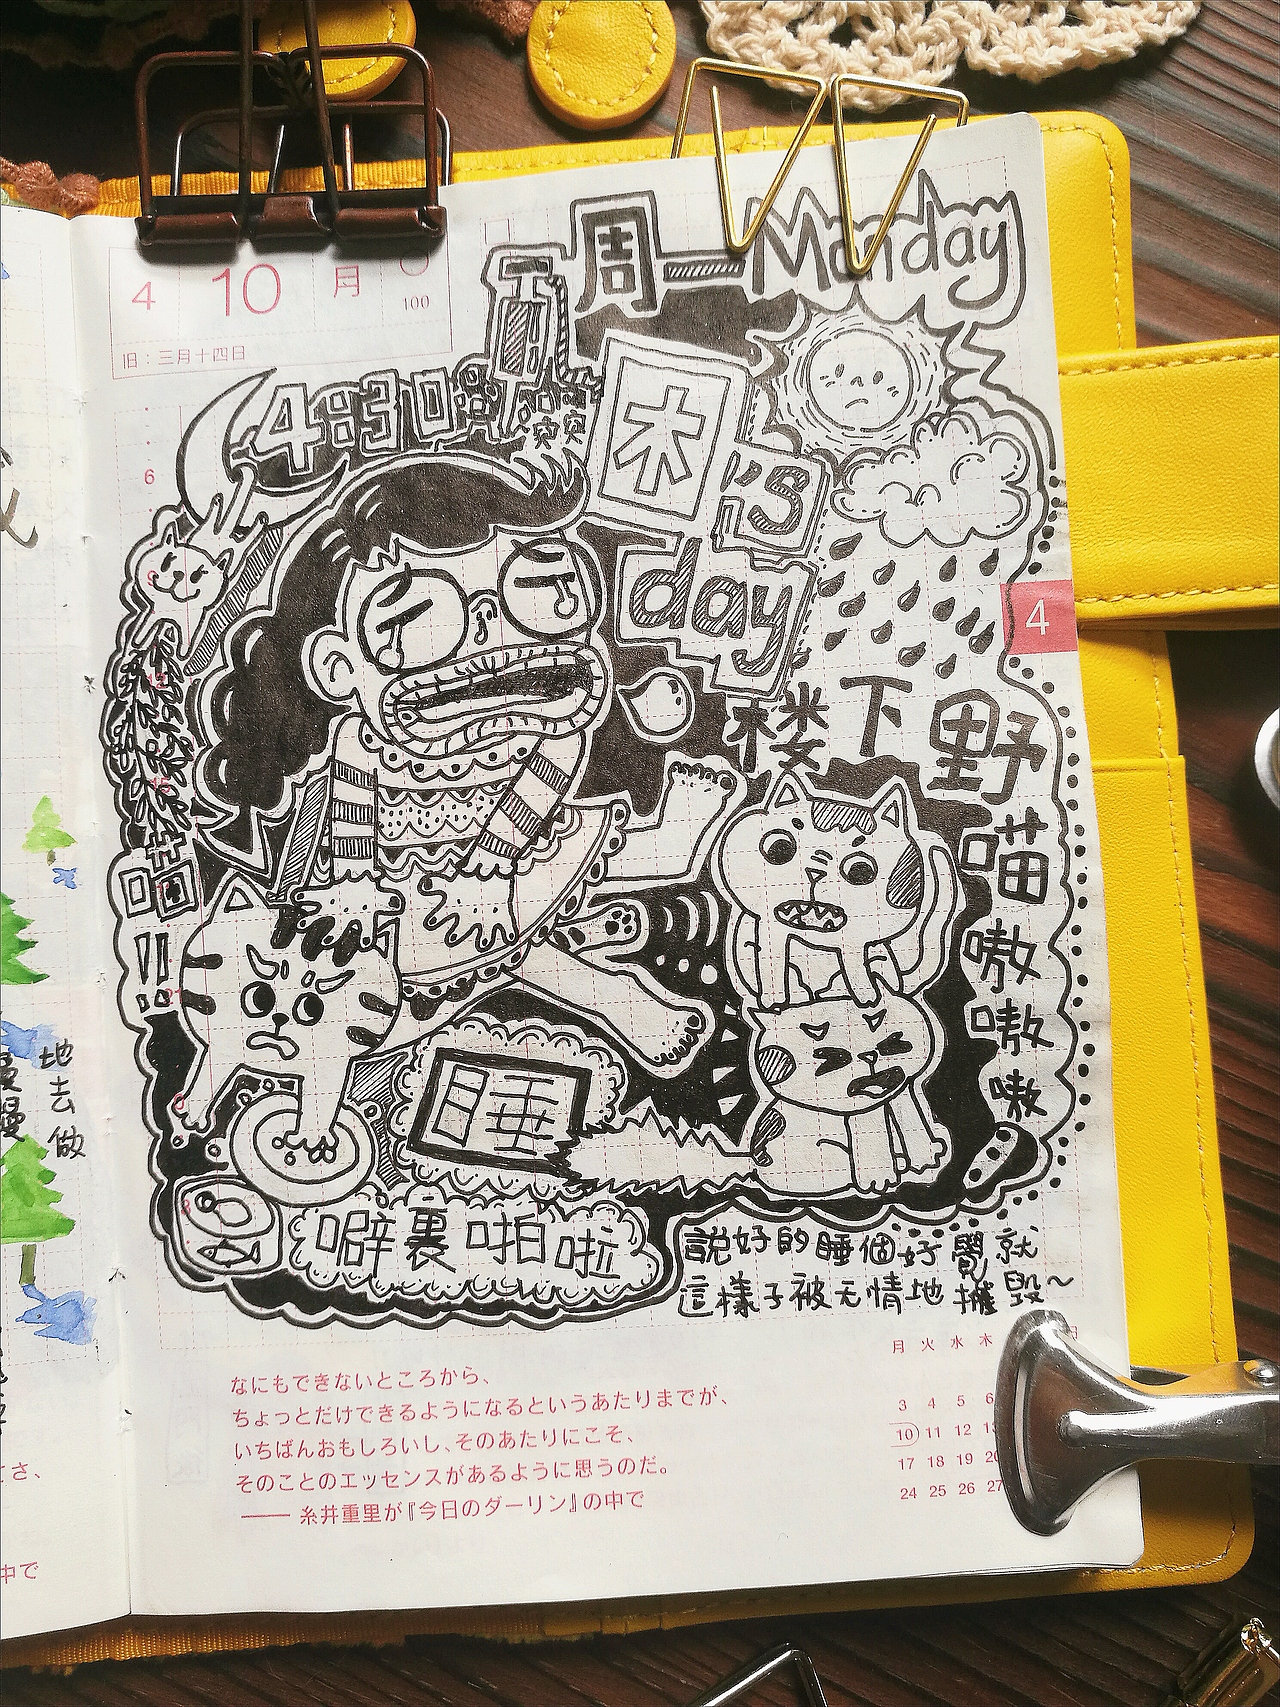 4 10 月
100
旧：三月十四日
周一 Monday
雨
4:30
突突
困's
day
6
楼下野
喵
嗷
嗷
嗷
喵
!!
睡
噼裏啪啦
說好的睡個好覺就
這樣子被无情地摧毀~
4
地去做
慢慢
なにもできないところから、
ちょっとだけできるようになるというあたりまでが、
いちばんおもしろいし、そのあたりにこそ、
そのことのエッセンスがあるように思うのだ。
—— 糸井重里が『今日のダーリン』の中で
月 火 水 木
3 4 5 6
10 11 12 13
17 18 19 20
24 25 26 27
さ、
中で